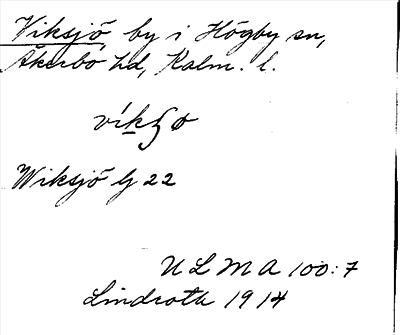 Viksjö by i Högby sn,
Åkerbo hd, Kalm. l.
Wiksjö G 22
U L M A 100:7
Lindroth 1914